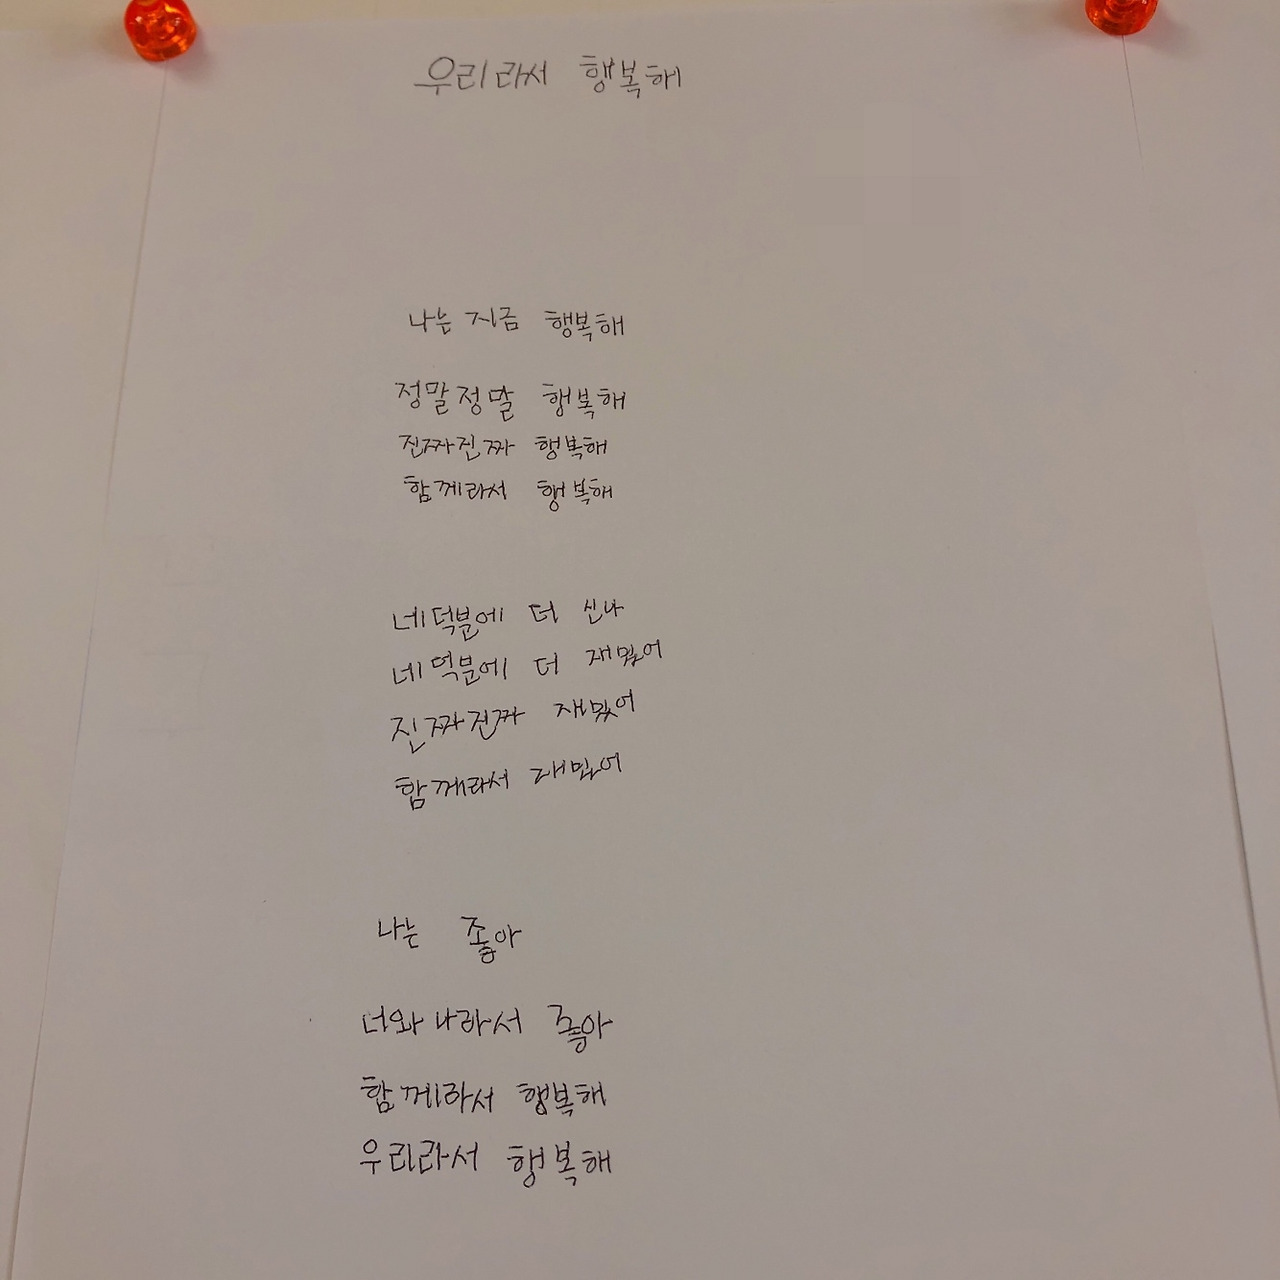 우리라서 행복해
나는 지금 행복해
정말정말 행복해
진짜진짜 행복해
함께라서 행복해
네덕분에 더 신나
네덕분에 더 재밌어
진짜진짜 재밌어
함께라서 재밌어
나는 좋아
너와나라서 좋아
함께라서 행복해
우리라서 행복해